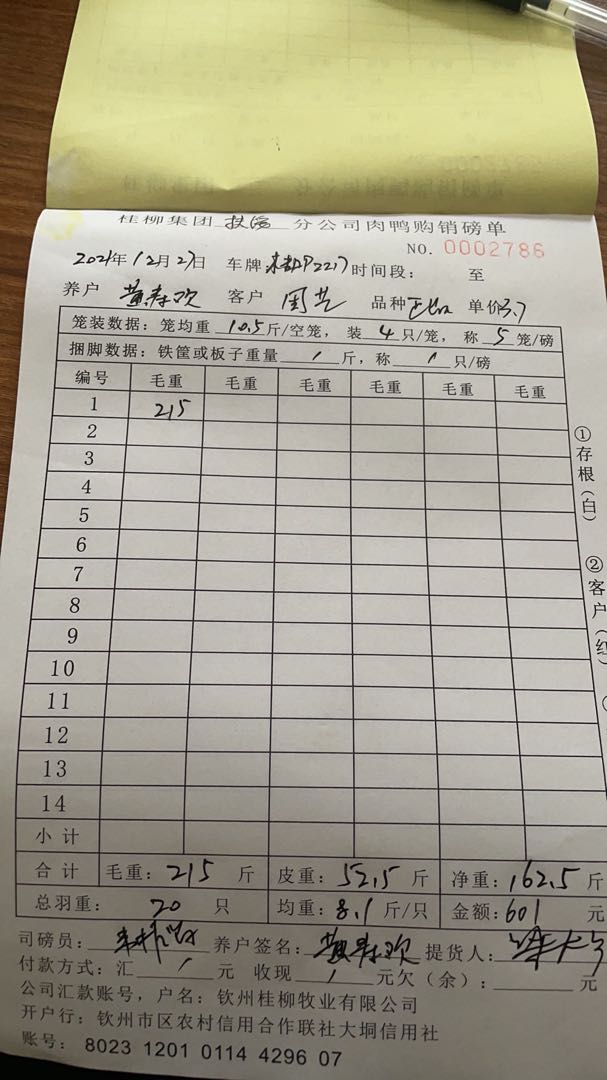 桂柳集团 分公司肉鸭购销磅单
NO. 0002786
2021年12月27日 车牌 时间段: 至
养户 黄春欢 客户 周艺 品种 单价3.7
笼装数据: 笼均重 10.5 斤/空笼, 装 4 只/笼, 称 5 笼/磅
捆脚数据: 铁筐或板子重量 / 斤, 称 / 只/磅
编号 毛重 毛重 毛重 毛重 毛重 毛重
1 215
2
3
4
5
6
7
8
9
10
11
12
13
14
小计
合计 毛重: 215 斤 皮重: 52.5 斤 净重: 162.5 斤
总羽重: 20 只 均重: 8.1 斤/只 金额: 601 元
司磅员: 养户签名: 黄春欢 提货人:
付款方式: 汇 / 元 收现 / 元欠(余): 元
公司汇款账号, 户名: 钦州桂柳牧业有限公司
开户行: 钦州市区农村信用合作联社大垌信用社
账号: 8023 1201 0114 4296 07
①存根(白)
②客户(红)